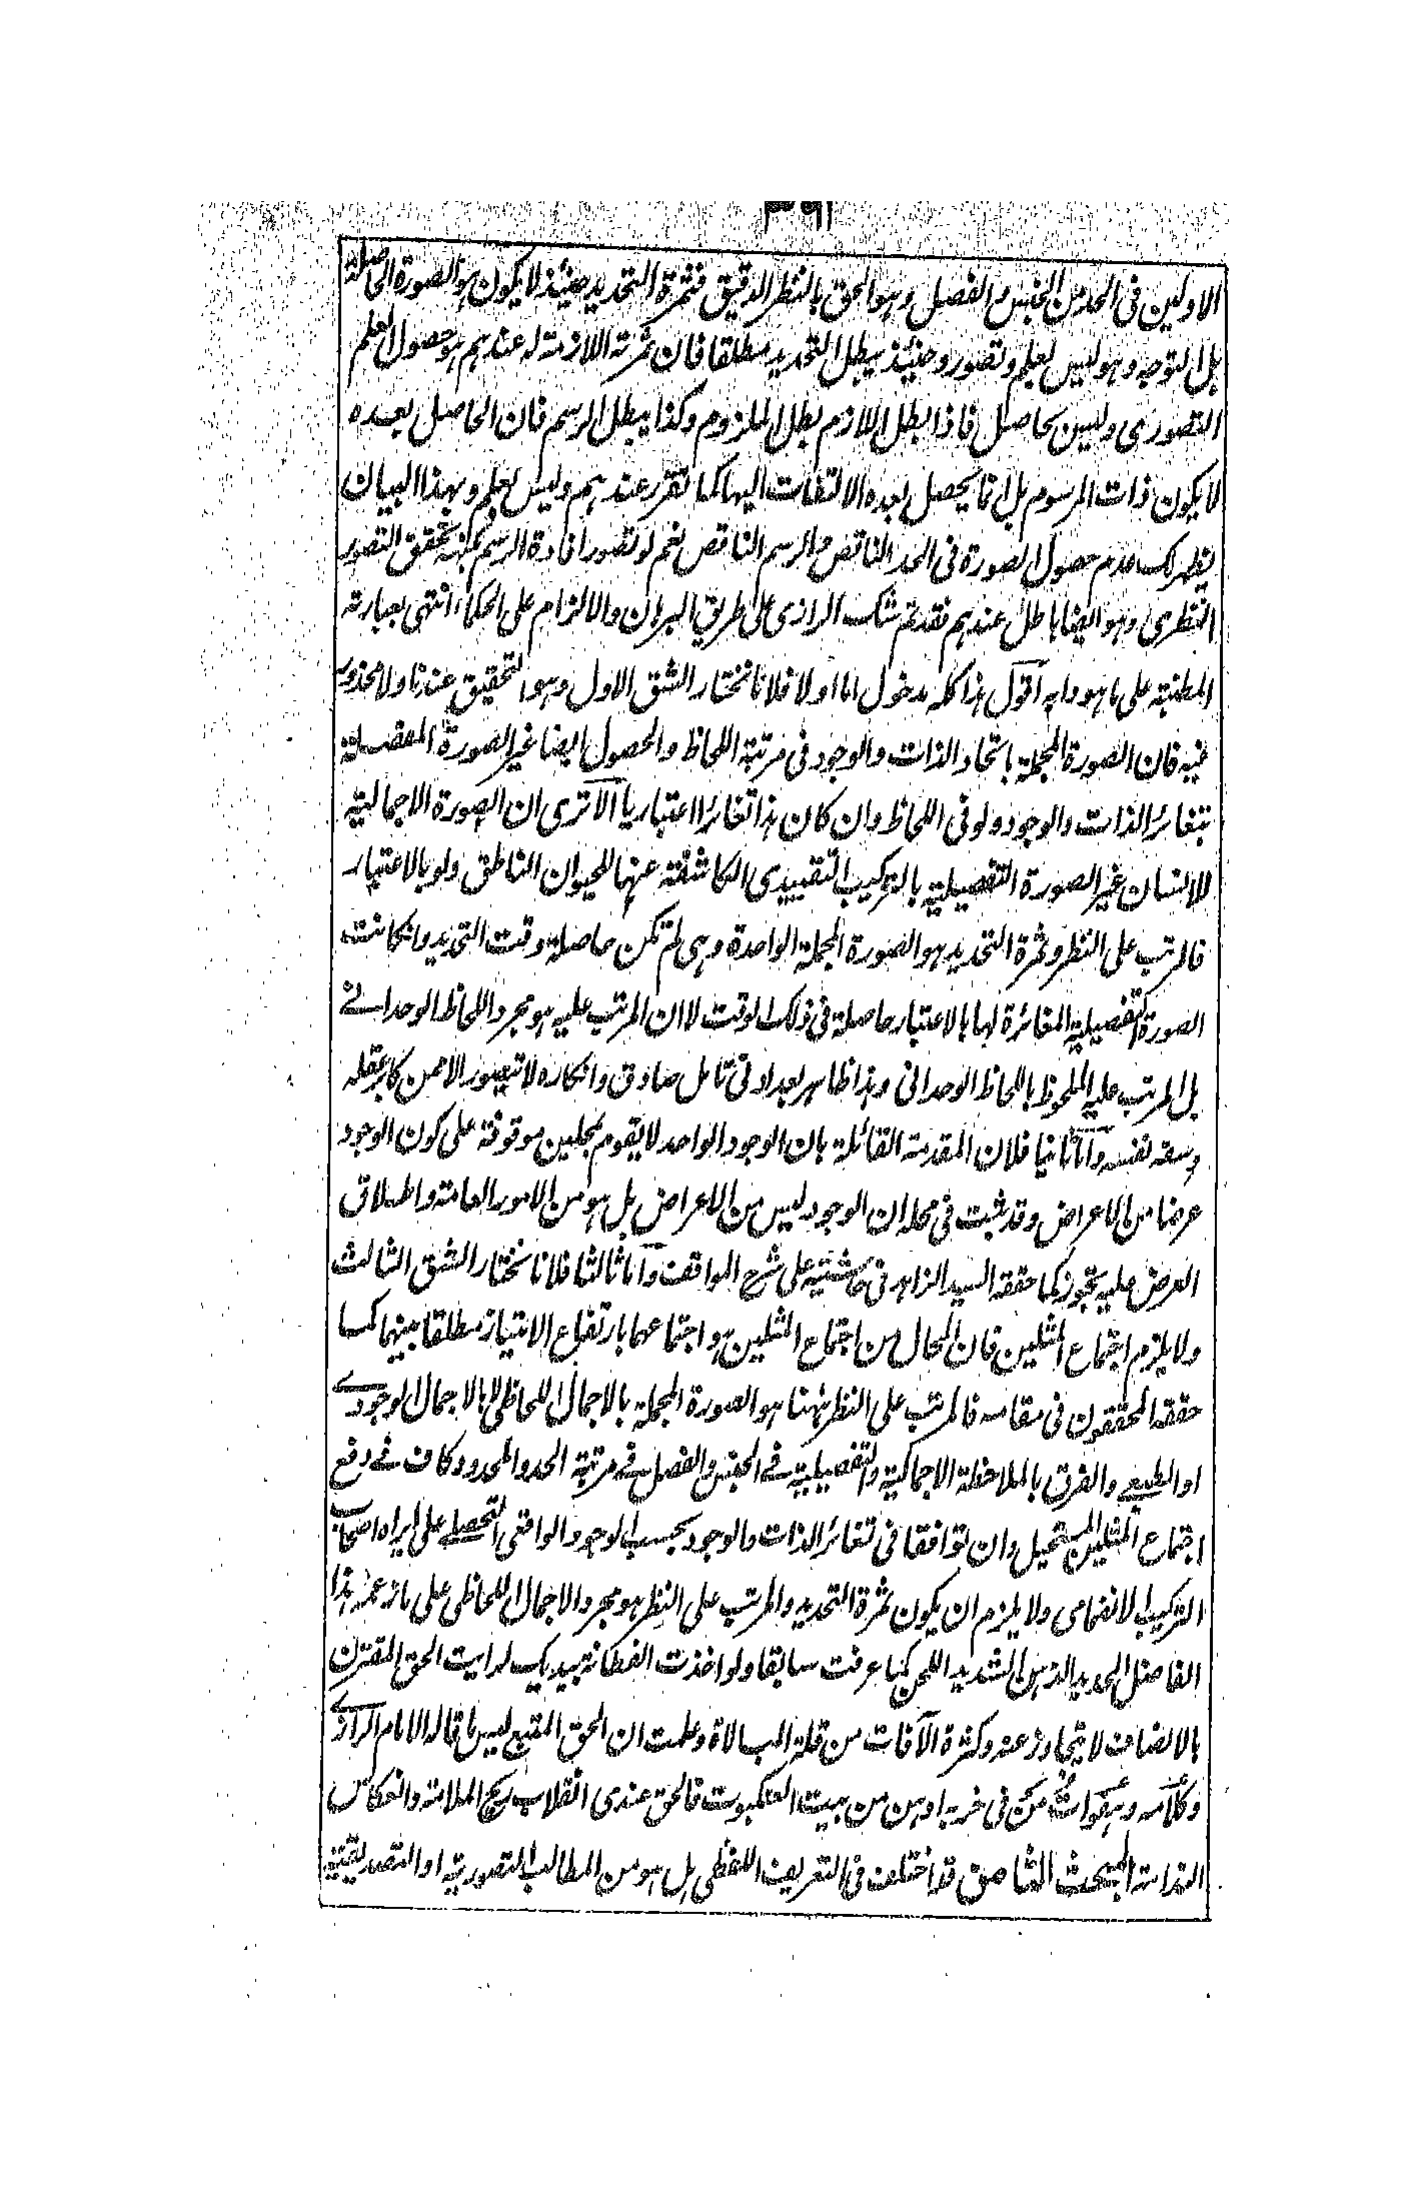 ٣٩١
الاولين فى الحد من الجنس والفصل وهو الحق بالنظر الدقيق فثمرة التحديد حينئذ لا يكون هو الصورة الحاصلة
بل التوجه وهو ليس بعلم وتصور وحينئذ يبطل التحديد مطلقا فان ثمرته اللازمة له عندهم هو حصول العلم
التصورى وليس بحاصل فاذا بطل اللازم بطل الملزوم وكذا يبطل الرسم فان الحاصل بعده
لا يكون ذات المرسوم بل انما يحصل بعده الالتفات اليها كما تقرر عندهم وليس بعلم وبهذا البيان
يظهر لك عدم حصول الصورة فى الحد الناقص والرسم الناقص نعم لو تصور افادة الرسم بكنه تحقق التصور
النظرى وهو ايضا باطل عندهم فقد تم شك الرازى على طريق البرهان والالزام على الحكماء انتهى بعبارته
المطنبة على ما هو دابه اقول هذا كله مدخول اما اولا فلانا نختار الشق الاول وهو التحقيق عندنا ولا محذور
فيه فان الصورة المجملة باتحاد الذات والوجود فى مرتبة اللحاظ والحصول ايضا غير الصورة المفصلة
بتغائر الذات والوجود ولو فى اللحاظ وان كان هذا تغائرا اعتباريا الا ترى ان الصورة الاجمالية
للانسان غير الصورة التفصيلية بالتركيب التقييدى الكاشفة عنها للحيوان الناطق ولو بالاعتبار
فالمرتب على النظر وثمرة التحديد هو الصورة المجملة الواحدة وهى لم تكن حاصلة وقت التحديد وان كانت
الصورة التفصيلية المغائرة لها بالاعتبار حاصلة فى ذلك الوقت لا ان المرتب عليه هو مجرد اللحاظ الوحدانے
بل المرتب عليه الملحوظ باللحاظ الوحدانى وهذا ظاهر بعد ادنى تامل صادق وانكاره لا يتصور الا ممن كابر عقله
وسفه نفسه واما ثانيا فلان المقدمة القائلة بان الوجود الواحد لا يقوم بمحلين موقوفة على كون الوجود
عرضا من الاعراض وقد ثبت فى محله ان الوجود ليس من الاعراض بل هو من الامور العامة واطلاق
العرض عليه تجوز كما حققه السيد الزاهد فى حاشيته على شرح المواقف واما ثالثا فلانا نختار الشق الثالث
ولا يلزم اجتماع المثلين فان المحال من اجتماع المثلين هو اجتماعهما بارتفاع الامتياز مطلقا بينهما كما
حققه المحققون فى مقامه فالمرتب على النظر ههنا هو الصورة المجملة بالاجمال اللحاظى لا بالاجمال الوجودے
او الطبعے والفرق بالملاحظة الاجمالية والتفصيلية فے الجنس والفصل فے مرتبة الحد والمحدود كاف فے دفع
اجتماع المثلين المستحيل وان توافقا فى تغائر الذات والوجود بحسب الوجود الواقعى التحصلے على ما يراه اصحاب
التركيب الانضمامى ولا يلزم ان يكون ثمرة التحديد والمرتب على النظر هو مجرد الاجمال اللحاظى على ما زعمه هذا
الفاضل الحديد الذهن الشديد اللحن كما عرفت سابقا ولو اخذت الفطانة بيديك لدايت الحق المقترن
بالانصاف لا يتجاوز عنه وكثرة الآفات من قلة المبالاة وعلمت ان الحق المتبع ليس ما قاله الامام الرازے
وكلامه وهفواته من فى خربه اوهن من بيت العنكبوت فالحق عندى انقلاب ريح الملامة وانعكاس
الندامة المبحث الثامن قد اختلف فى التعريف اللفظى بل هو من المطالب التصورية او التصديقية